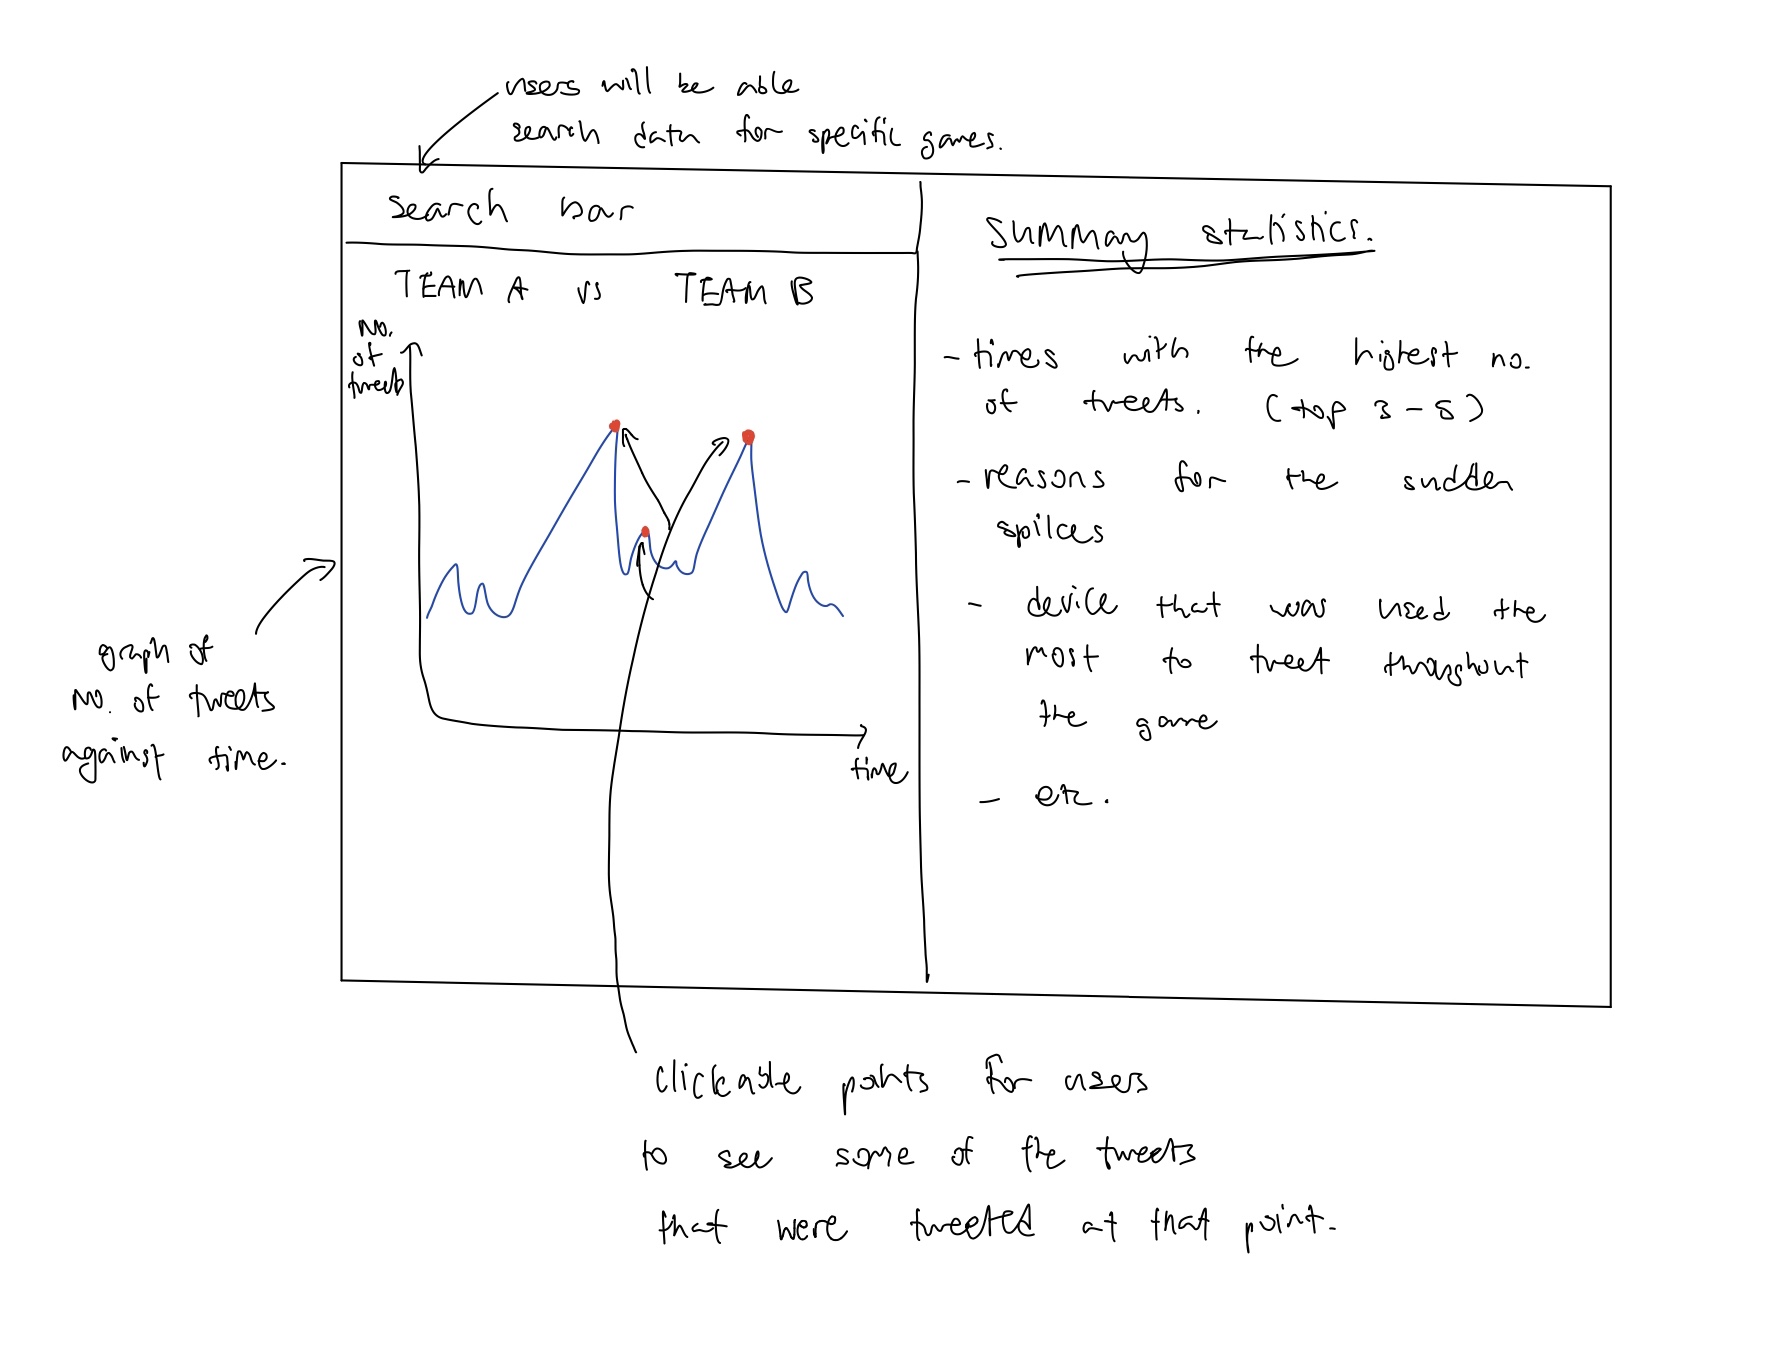 users will be able
search data for specific games.
search bar
TEAM A vs TEAM B
No.
of
tweets
time
graph of
No. of tweets
against time.
summary statistics.
- times with the highest no.
of tweets. (top 3 - 5)
- reasons for the sudden
spikes
- device that was used the
most to tweet throughout
the game
- etc.
clickable points for users
to see some of the tweets
that were tweeted at that point.